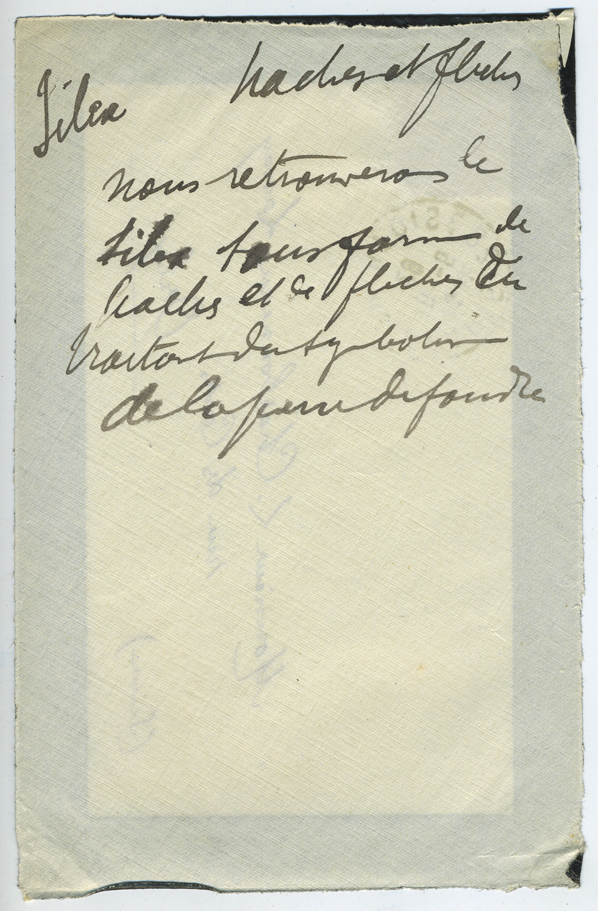 Silex haches et flèches
nous retrouverons le
silex sous forme de
haches et de flèches En
traitant du symbolisme
de la pierre de foudre